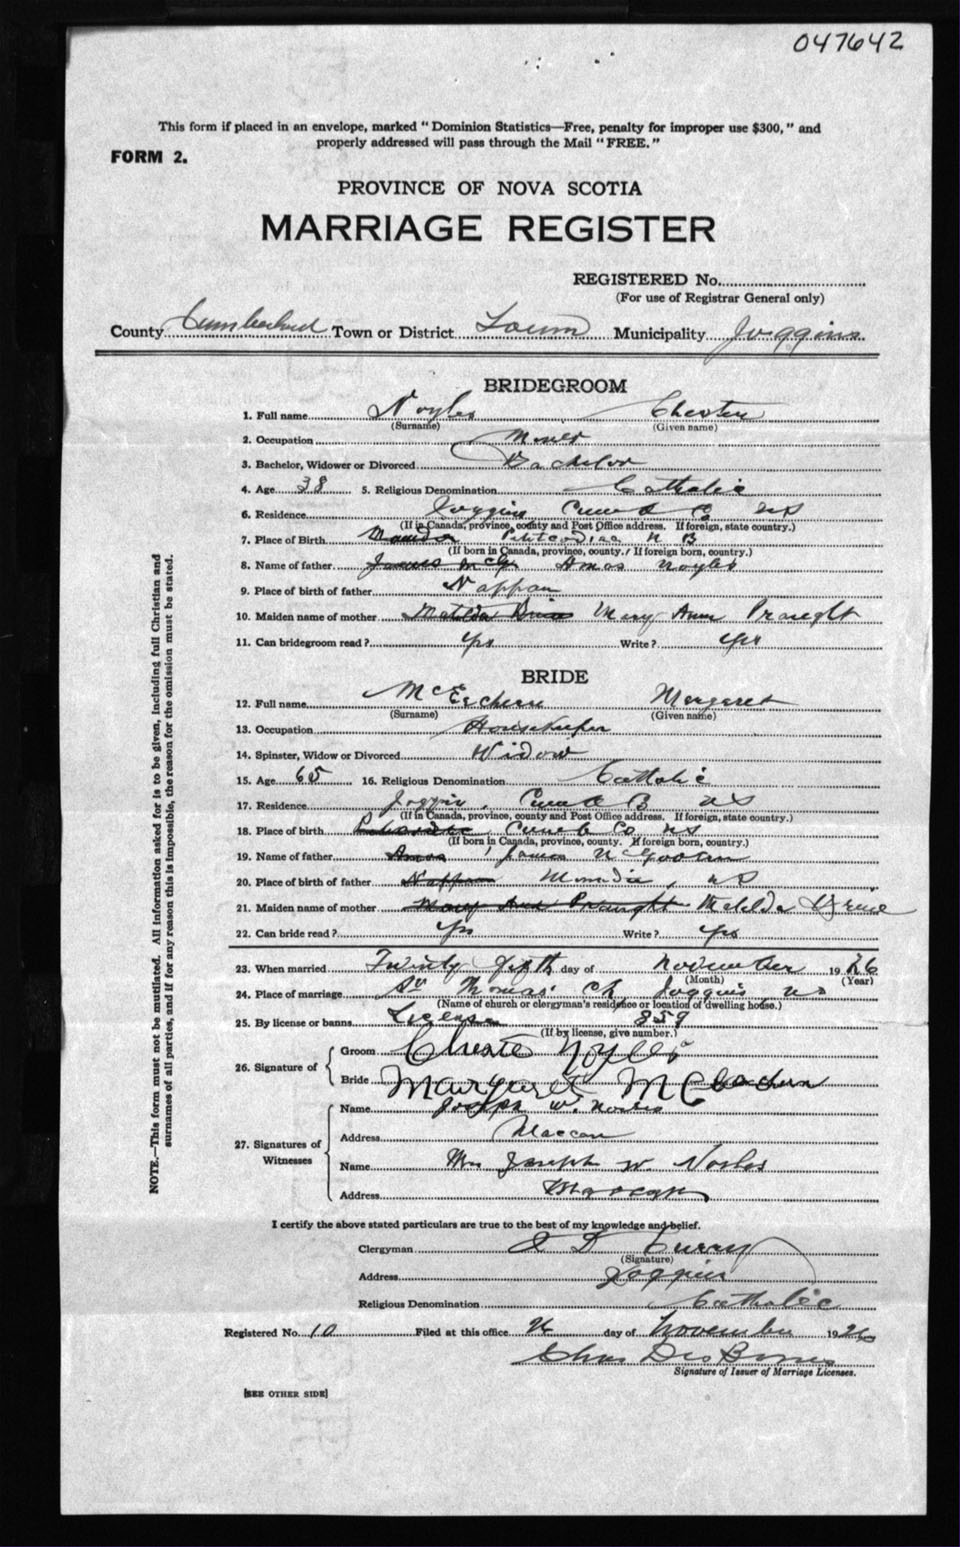 047642
This form if placed in an envelope, marked " Dominion Statistics—Free, penalty for improper use $300, " and
properly addressed will pass through the Mail "FREE."
FORM 2.
PROVINCE OF NOVA SCOTIA
MARRIAGE REGISTER
REGISTERED No.
(For use of Registrar General only)
County Cumberland Town or District Town Municipality Joggins
BRIDEGROOM
1. Full name Noyles Chester
(Surname) (Given name)
2. Occupation Miner
3. Bachelor, Widower or Divorced Bachelor
4. Age 38 5. Religious Denomination Catholic
6. Residence Joggins Co NS
(If in Canada, province, county and Post Office address. If foreign, state country.)
7. Place of Birth Petitcodiac N B
(If born in Canada, province, county. If foreign born, country.)
8. Name of father James McG Amos Noyles
9. Place of birth of father Nappan
10. Maiden name of mother Matilda Mary Ann Praught
11. Can bridegroom read? Yes Write? Yes
BRIDE
12. Full name McEachern Margaret
(Surname) (Given name)
13. Occupation Housekeeper
14. Spinster, Widow or Divorced Widow
15. Age 65 16. Religious Denomination Catholic
17. Residence Joggins NS
(If in Canada, province, county and Post Office address. If foreign, state country.)
18. Place of birth Cumb Co NS
(If born in Canada, province, county. If foreign born, country.)
19. Name of father Amos James
20. Place of birth of father Nappan NS
21. Maiden name of mother Mary Ann Praught Matilda
22. Can bride read? Yes Write? Yes
23. When married Twenty fifth day of November 1926
(Month) (Year)
24. Place of marriage St Thomas' Ch Joggins NS
(Name of church or clergyman's residence or location of dwelling house.)
25. By license or banns License 859
(If by license, give number.)
26. Signature of
Groom Chester Noyles
Bride Margaret McEachern
27. Signatures of Witnesses
Name Joseph W. Noiles
Address Maccan
Name Mrs Joseph W. Noiles
Address Maccan
I certify the above stated particulars are true to the best of my knowledge and belief.
Clergyman Curry
(Signature)
Address Joggins
Religious Denomination Catholic
Registered No. 10 Filed at this office day of November 1926
Chas
Signature of Issuer of Marriage Licenses.
[SEE OTHER SIDE]
NOTE.—This form must not be mutilated. All information asked for is to be given, including full Christian and
surnames of all parties, and if for any reason this is impossible, the reason for the omission must be stated.